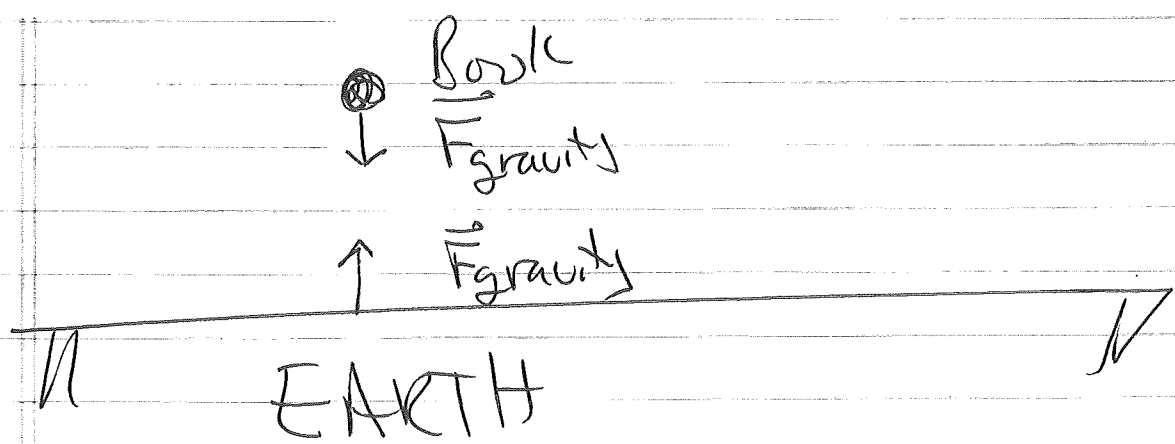 Book
F⃗gravity
F⃗gravity
EARTH